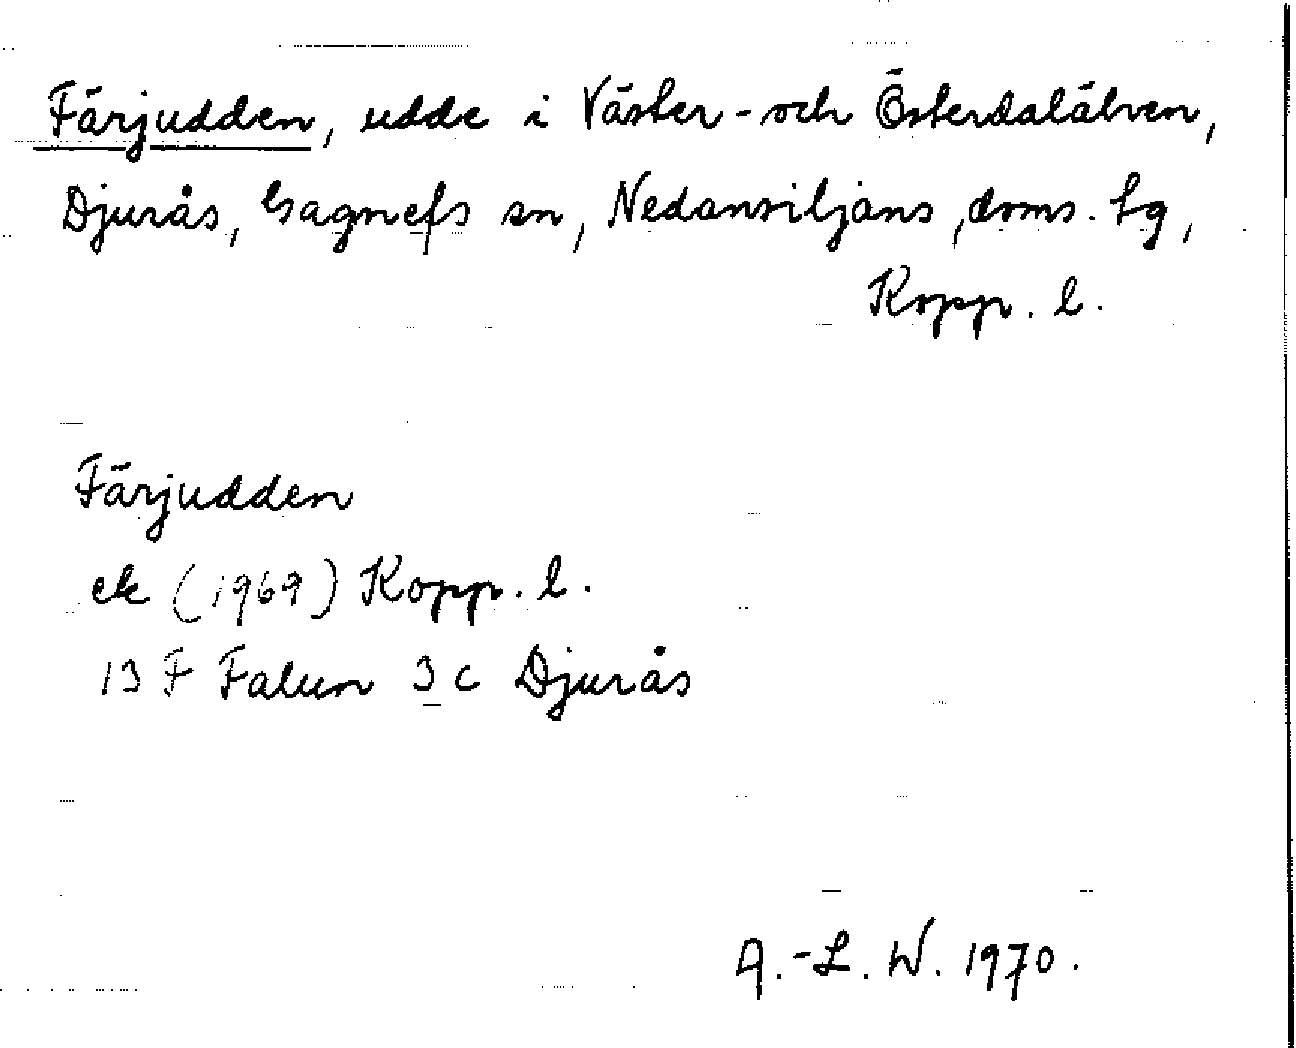 Färjudden, udde i Väster- och Österdalälven,
Djurås, Gagnefs sn, Nedansiljans doms. tg,
Kopp. l.
Färjudden
ek (1969) Kopp. l.
13 F Falun 3 c Djurås
A.-L. W. 1970.